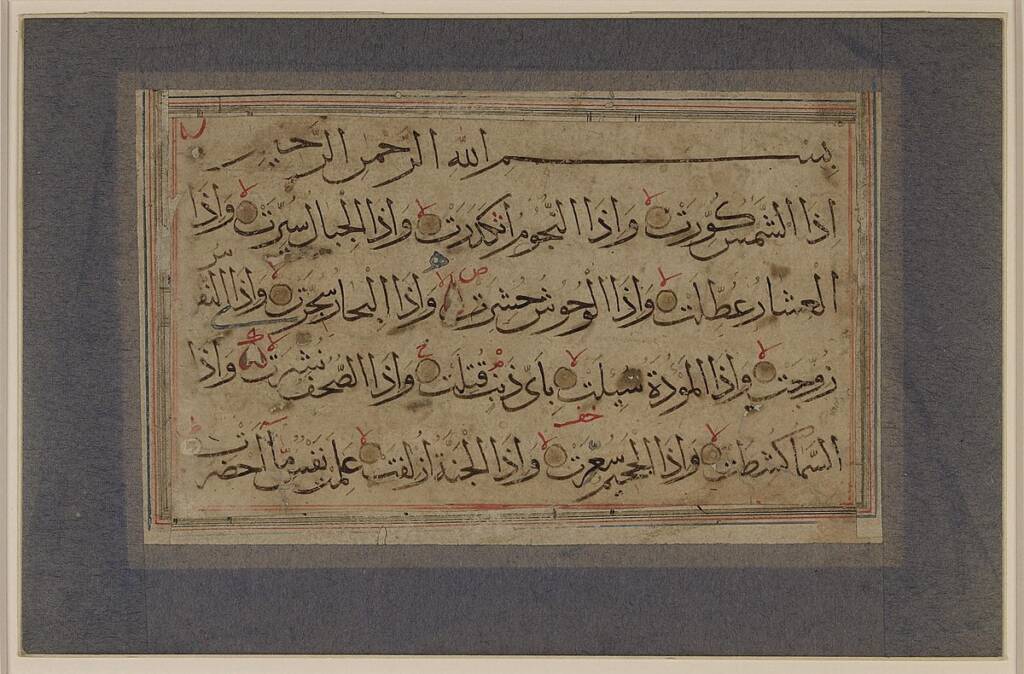 بِسْمِ اللهِ الرَّحْمٰنِ الرَّحِيمِ
اِذَا الشَّمْسُ كُوِّرَتْ وَاِذَا النُّجُومُ انْكَدَرَتْ وَاِذَا الْجِبَالُ سُيِّرَتْ وَاِذَا
الْعِشَارُ عُطِّلَتْ وَاِذَا الْوُحُوشُ حُشِرَتْ وَاِذَا الْبِحَارُ سُجِّرَتْ وَاِذَا النُّفُ
زُوِّجَتْ وَاِذَا الْمَوْدَةُ سُيِلَتْ بِاَيِّ ذَنْبٍ قُتِلَتْ وَاِذَا الصُّحُفُ نُشِرَتْ وَاِذَا
السَّمَا كُشِطَتْ وَاِذَا الْجَحِيمُ سُعِّرَتْ وَاِذَا الْجَنَّةُ اُزْلِفَتْ عَلِمَتْ نَفْسٌ مَّا اَحْضَرَتْ